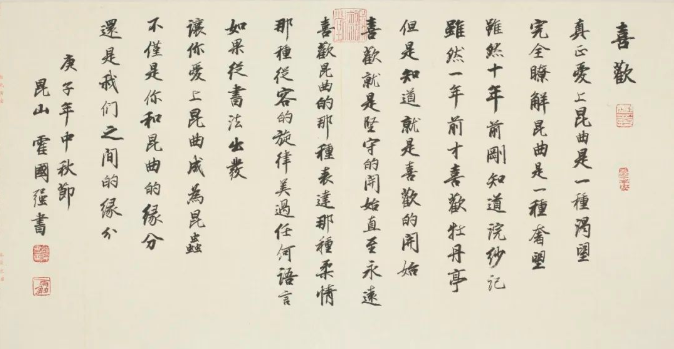 喜歡
真正愛上昆曲是一種渴望
完全瞭解昆曲是一種奢望
雖然十年前剛知道浣紗記
雖然一年前才喜歡牡丹亭
但是知道就是喜歡的開始
喜歡就是堅守的開始直至永遠
喜歡昆曲的那種表達那種柔情
那種從容的旋律美過任何語言
如果從書法出發
讓你愛上昆曲成為昆蟲
不僅是你和昆曲的緣分
還是我们之间的缘分
庚子年中秋節
昆山 霍國强書